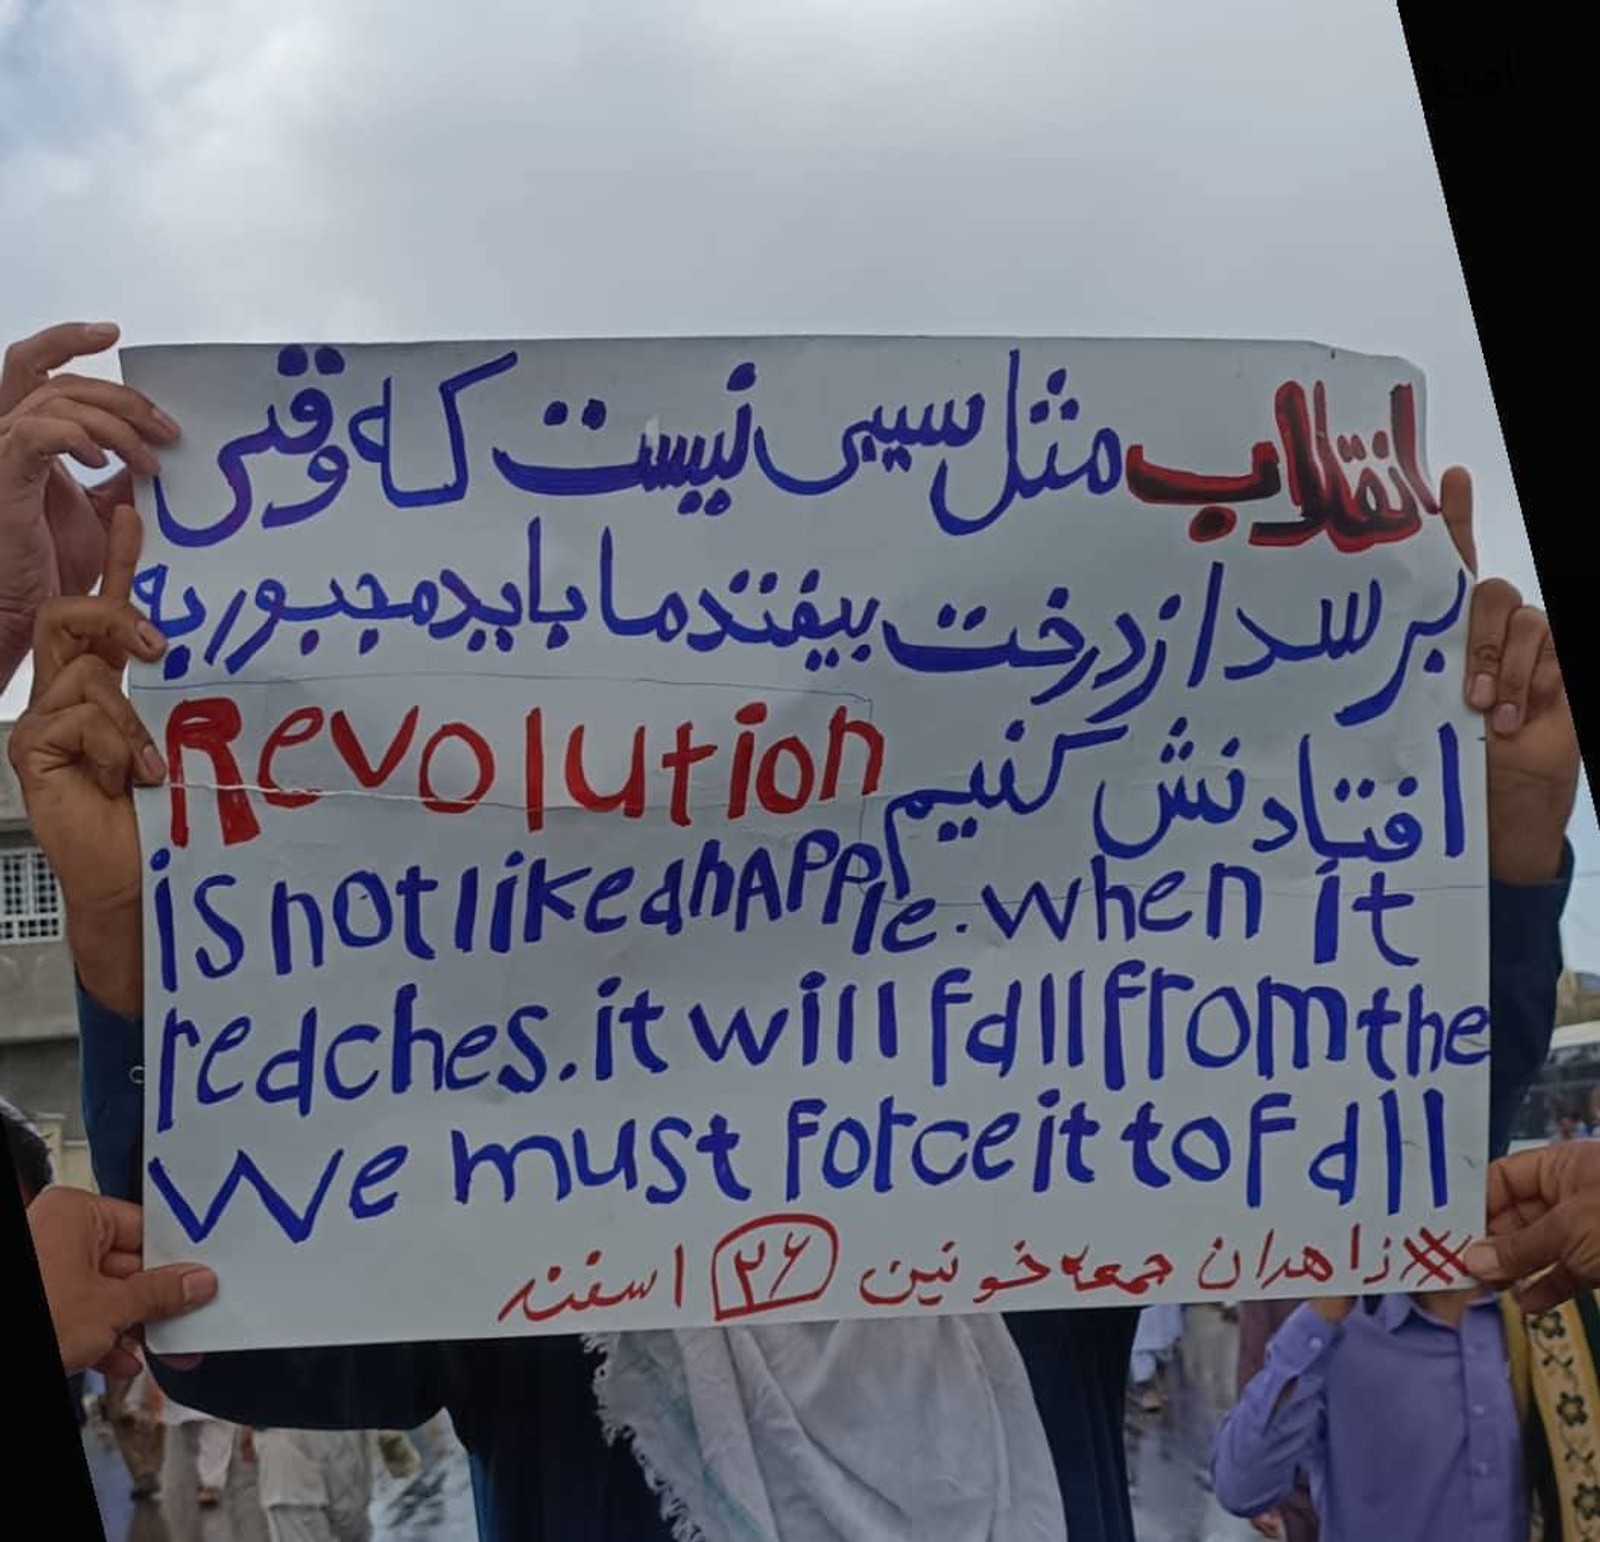 انقلاب مثل سیبی نیست که وقتی
برسد از درخت بیفتد ما باید مجبور به
افتادنش کنیم
Revolution
is not like an Apple. when it
reaches. it will fall from the
We must force it to fall
#زاهدان جمعه خونین ۲۶ اسفند